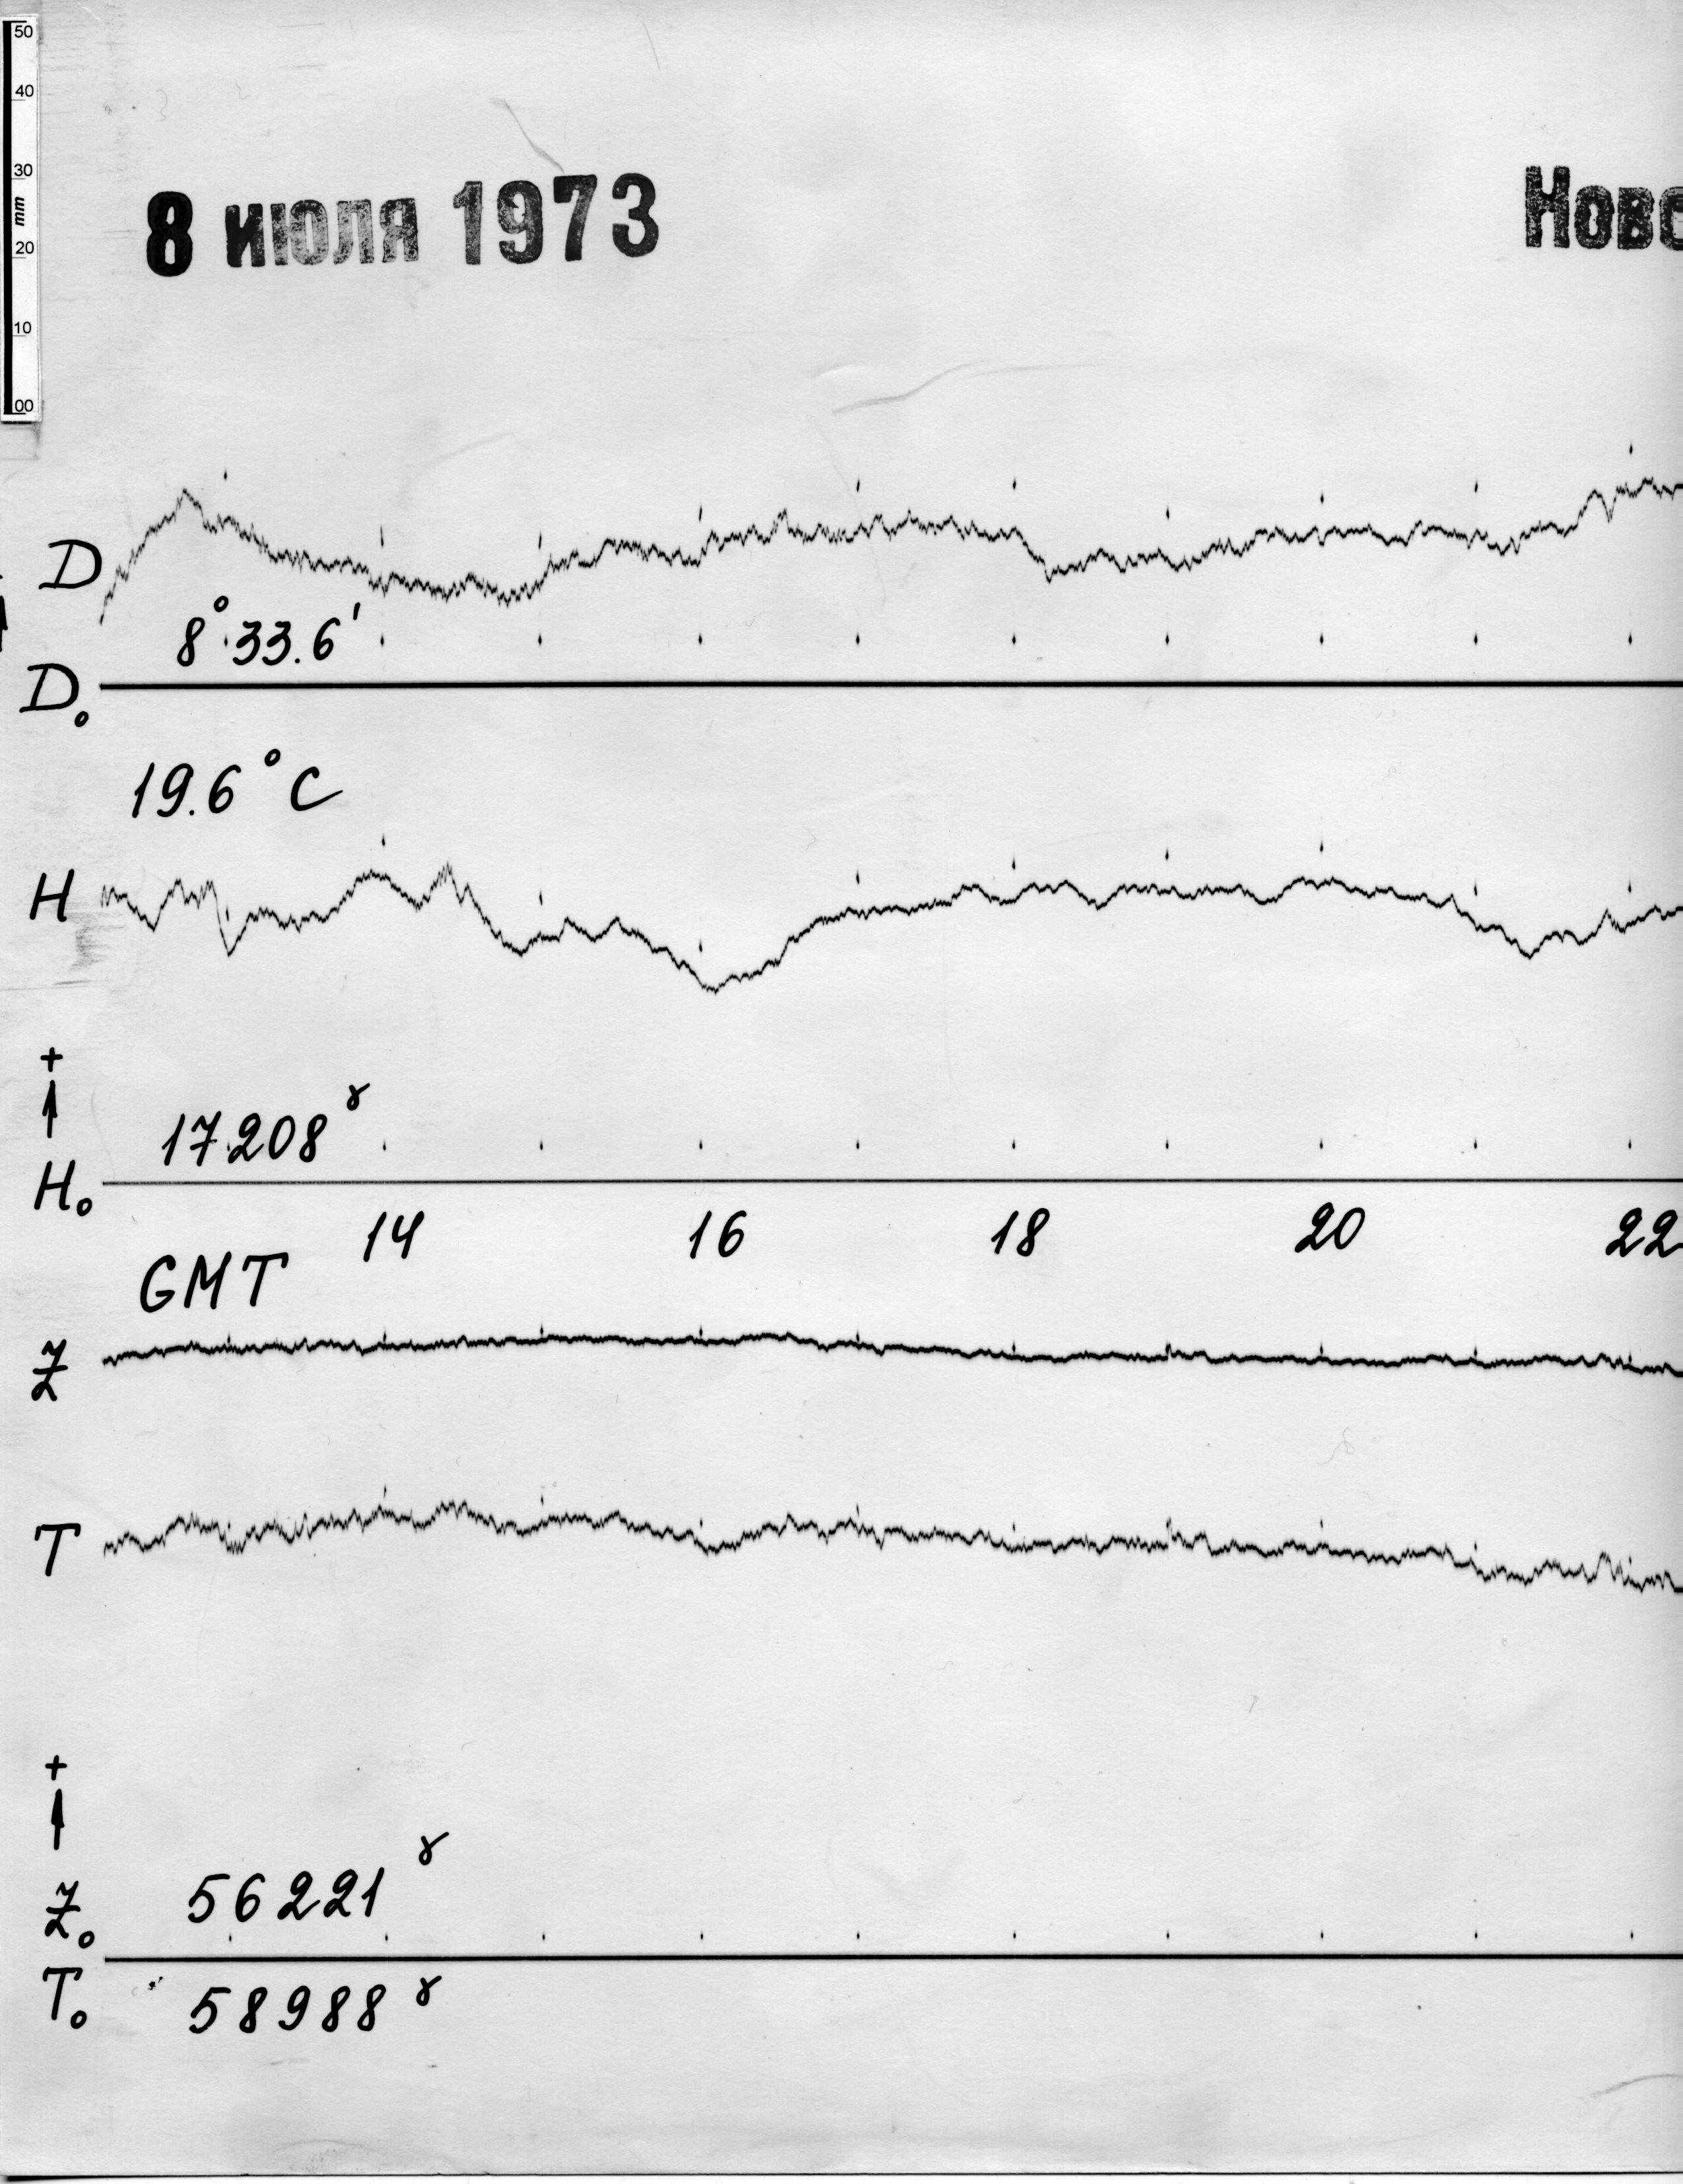 50
40
30
mm
20
10
00
8 июля 1973
Ново
D
8° 33.6'
D₀
19.6° C
H
+
17208 γ
H₀
14 16 18 20 22
GMT
Z
T
+
Z₀ 56221 γ
T₀ 58988 γ